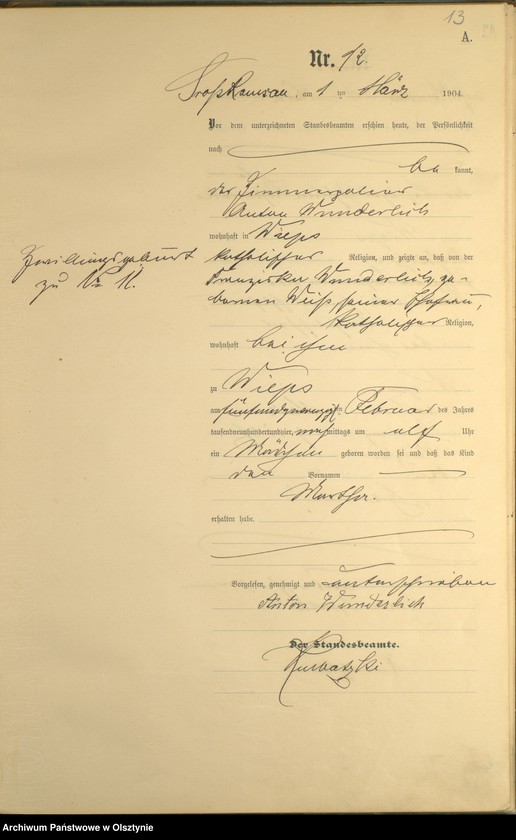 13
A.
Nr. 12.
Groß Ramsau, am 1 ten März 1904.
Vor dem unterzeichneten Standesbeamten erschien heute, der Persönlichkeit
nach
be kannt,
der Zimmerpolier
Anton Wunderlich
wohnhaft in Wieps
katholischer Religion, und zeigte an, daß von der
Zwillingsgeburt
zu Nr 11.
Franziska Wunderlich, ge-
bornen Weiß, seiner Ehefrau,
katholischer Religion,
wohnhaft bei ihm
zu Wieps
am fünfundzwanzigsten Februar des Jahres
tausendneunhundertundvier, nachmittags um elf Uhr
ein Mädchen geboren worden sei und daß das Kind
den Vornamen
Martha.
erhalten habe.
Vorgelesen, genehmigt und unterschrieben
Anton Wunderlich
Der Standesbeamte.
Archiwum Państwowe w Olsztynie